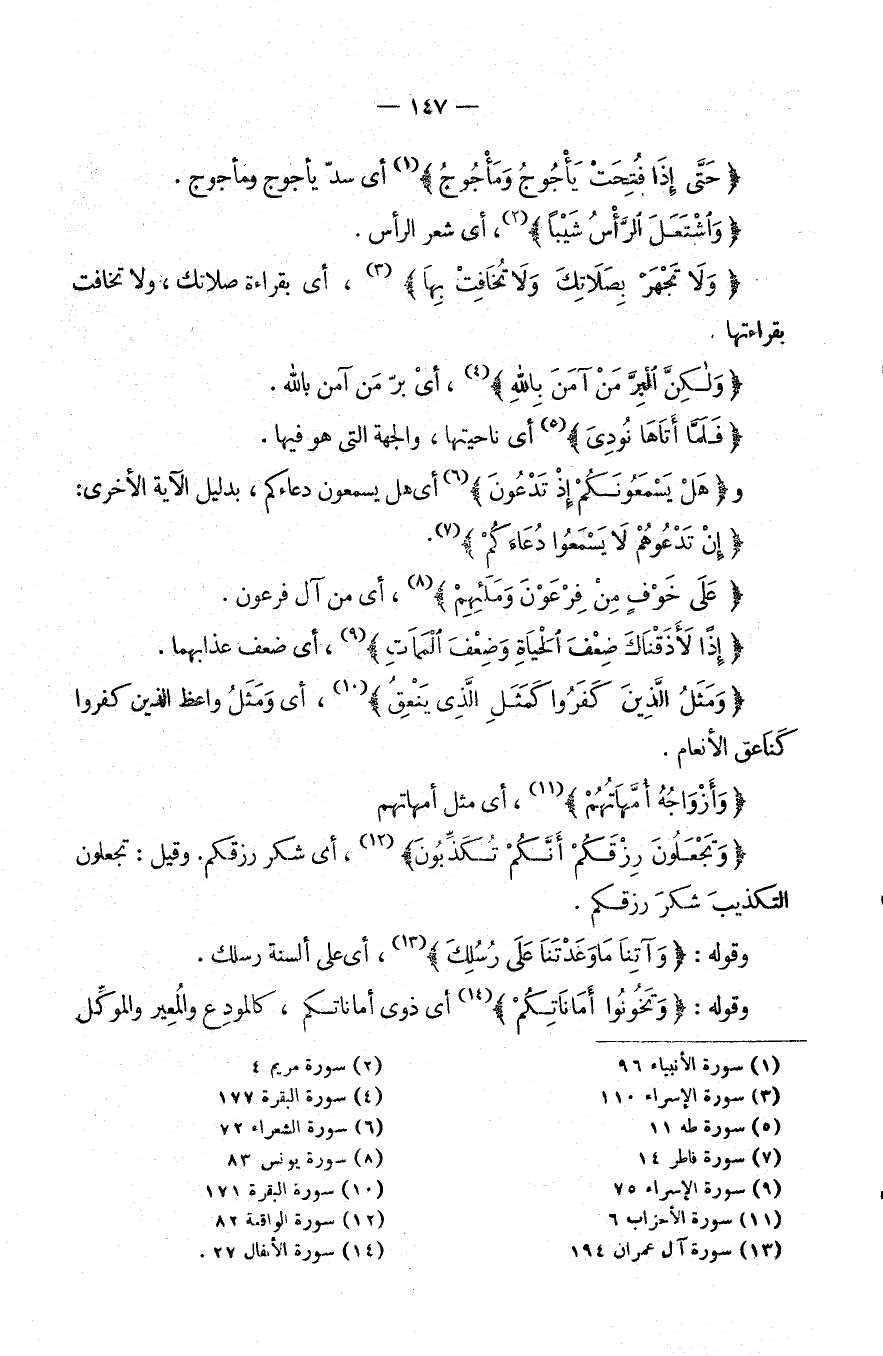 — ١٤٧ —
﴿ حَتَّى إِذَا فُتِحَتْ يَأْجُوجُ وَمَأْجُوجُ ﴾(١) أى سدّ يأجوج ومأجوج .
﴿ وَٱشْتَعَلَ ٱلرَّأْسُ شَيْبًا ﴾(٢)، أى شعر الرأس .
﴿ وَلَا تَجْهَرْ بِصَلَاتِكَ وَلَا تُخَافِتْ بِهَا ﴾ (٣) ، أى بقراءة صلاتك ، ولا تخافت
بقراءتها .
﴿ وَلٰكِنَّ ٱلْبِرَّ مَنْ آمَنَ بِاللهِ ﴾(٤) ، أىْ برّ مَن آمن بالله .
﴿ فَلَمَّا أَتَاهَا نُودِىَ ﴾(٥) أى ناحيتها ، والجهة التى هو فيها .
و﴿ هَلْ يَسْمَعُونَكُمْ إِذْ تَدْعُونَ ﴾(٦) أى هل يسمعون دعاءكم ، بدليل الآية الأخرى:
﴿ إِنْ تَدْعُوهُمْ لَا يَسْمَعُوا دُعَاءَكُمْ ﴾(٧).
﴿ عَلَى خَوْفٍ مِنْ فِرْعَوْنَ وَمَلَئِهِمْ ﴾(٨) ، أى من آل فرعون .
﴿ إِذًا لَأَذَقْنَاكَ ضِعْفَ ٱلْحَيَاةِ وَضِعْفَ ٱلْمَمَاتِ ﴾(٩) ، أى ضعف عذابهما .
﴿ وَمَثَلُ الَّذِينَ كَفَرُوا كَمَثَلِ الَّذِى يَنْعِقُ ﴾(١٠) ، أى وَمَثَلُ واعظ الذين كفروا
كَنَاعق الأنعام .
﴿ وَأَزْوَاجُهُ أُمَّهَاتُهُمْ ﴾(١١) ، أى مثل أمهاتهم
﴿ وَتَجْعَلُونَ رِزْقَكُمْ أَنَّكُمْ تُكَذِّبُونَ﴾ (١٢) ، أى شكر رزقكم. وقيل : تجعلون
التكذيبَ شكرَ رزقكم .
وقوله : ﴿ وَآتِنَا مَا وَعَدْتَنَا عَلَى رُسُلِكَ ﴾(١٣) ، أى على ألسنة رسلك .
وقوله : ﴿ وَتَخُونُوا أَمَانَاتِكُمْ ﴾(١٤) أى ذوى أماناتكم ، كالمودِع والمُعِير والموكِّل
(١) سورة الأنبياء ٩٦ (٢) سورة مريم ٤
(٣) سورة الإسراء ١١٠ (٤) سورة البقرة ١٧٧
(٥) سورة طه ١١ (٦) سورة الشعراء ٧٢
(٧) سورة فاطر ١٤ (٨) سورة يونس ٨٣
(٩) سورة الإسراء ٧٥ (١٠) سورة البقرة ١٧١
(١١) سورة الأحزاب ٦ (١٢) سورة الواقعة ٨٢
(١٣) سورة آل عمران ١٩٤ (١٤) سورة الأنفال ٢٧ .